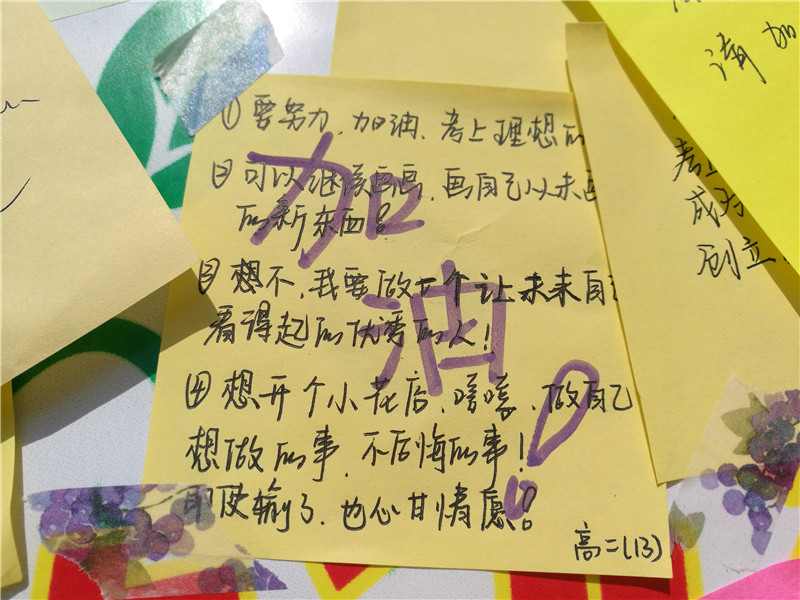 ①要努力,加油,考上理想的
②可以继续画画,画自己从未画
的新东西!
③想不,我要做一个让未来自己
看得起的优秀的人!
④想开个小花店,做自己
想做的事,不后悔的事!
即使输了,也心甘情愿!
高二(13)
加
油!
请加
考上
成为
创立